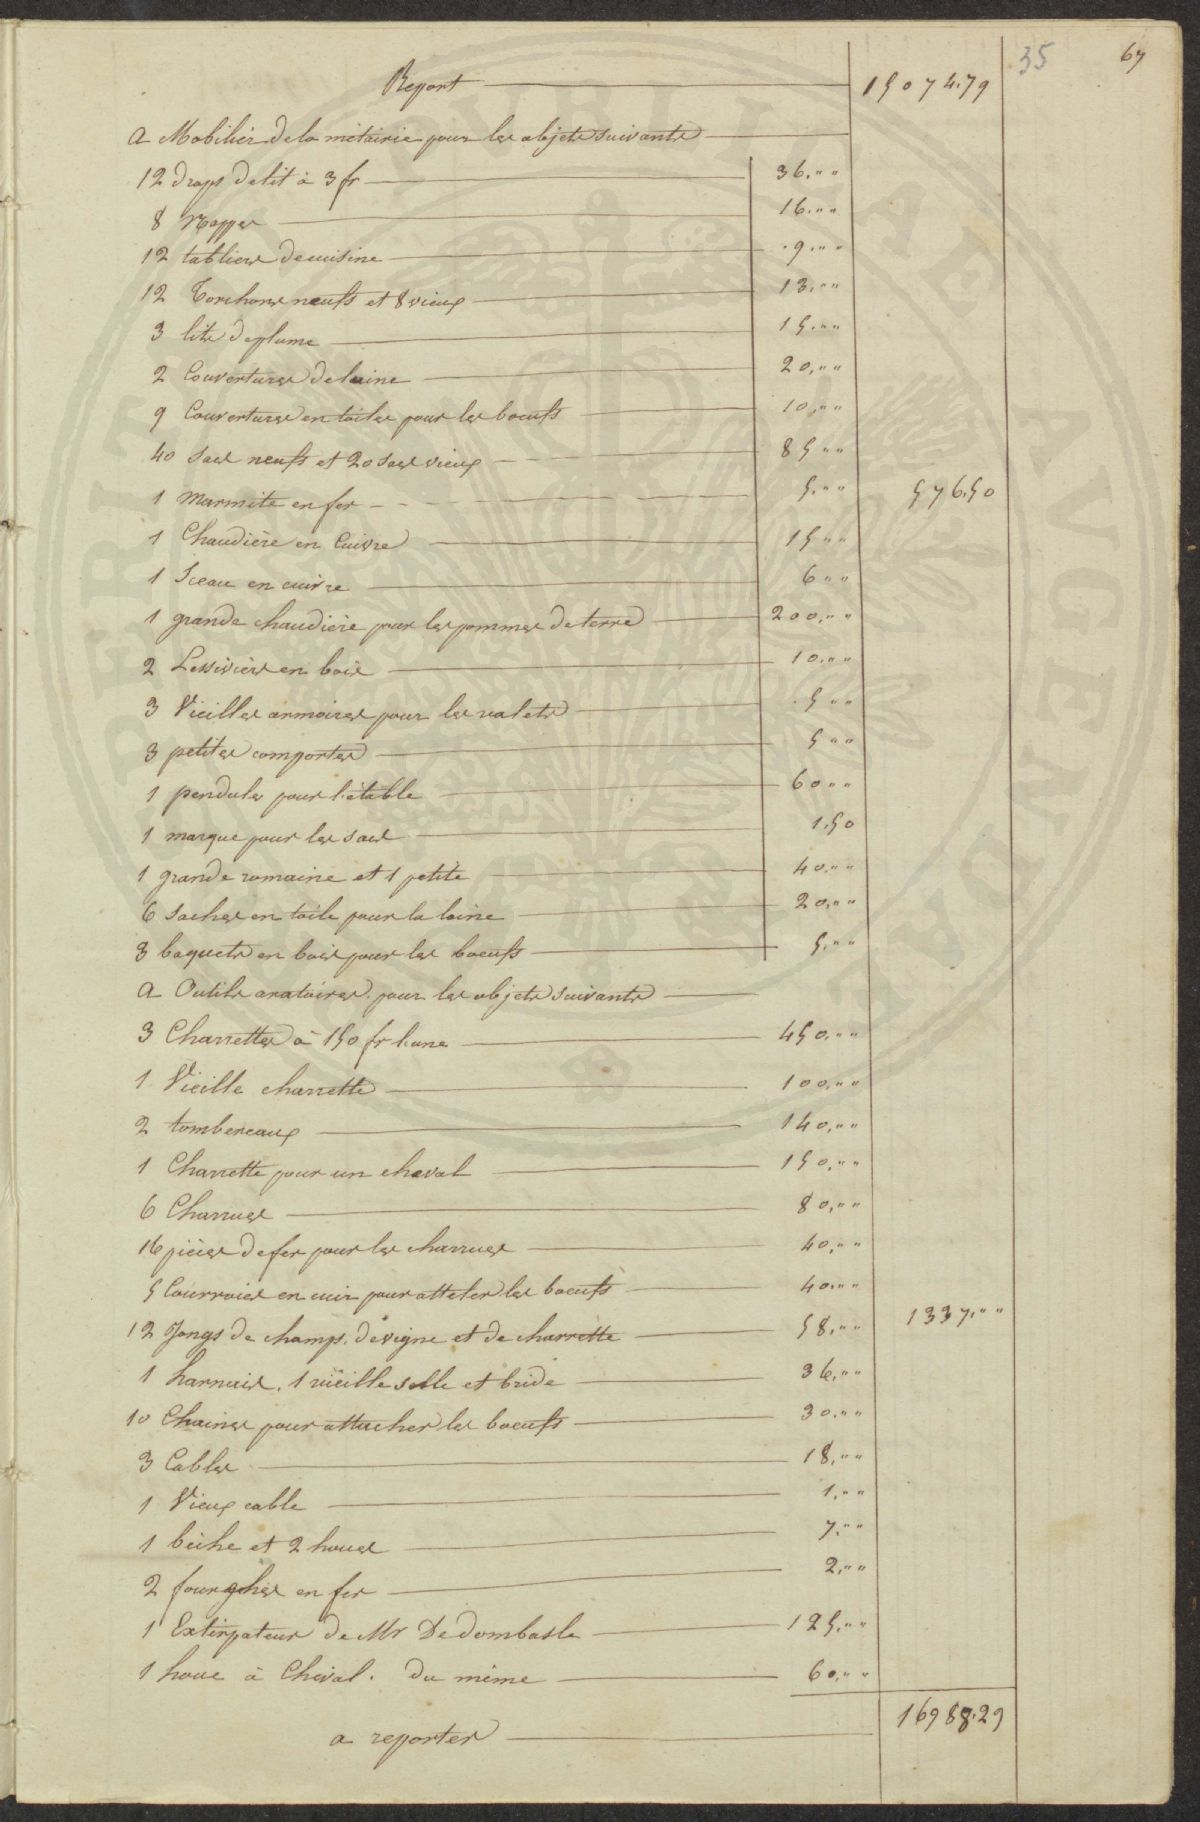 35 67
Report 15074.79
a Mobilier de la métairie pour les objets suivants
12 draps de lit à 3 fr 36.""
8 Nappes 16.""
12 tabliers de cuisine .9.""
12 Torchons neufs et 8 vieux 13.""
3 lits de plume 15.""
2 Couvertures de laine 20.""
9 Couvertures en toiles pour les boeufs 10.""
40 sacs neufs et 20 sacs vieux 85""
1 Marmite en fer 5."" 576.50
1 Chaudière en Cuivre 15""
1 Sceau en cuivre 6""
1 grande chaudière pour les pommes de terre 200.""
2 Lessivièrs en bois 10.""
3 Vieilles armoires pour les valets .5""
3 petites comportes 5""
1 pendules pour l'étable 60""
1 marque pour les sacs 1.50
1 grande romaine et 1 petite 40.""
6 saches en toile pour la laine 20.""
3 baquets en bois pour les boeufs 5.""
a Outils aratoires pour les objets suivants
3 Charrettes à 150 fr l'une 450.""
1 Vieille charrette 100.""
2 tombereaux 140.""
1 Charrette pour un cheval 150.""
6 Charrues 80.""
16 pièces de fer pour les charrues 40.""
5 Courroies en cuir pour atteler les boeufs 40.""
12 Jougs de champs, de vigne et de charrette 58."" 1337.""
1 harnais, 1 vieille selle et bride 36.""
10 Chaines pour attacher les boeufs 30.""
3 Cables 18.""
1 Vieux cable 1.""
1 bèche et 2 houes 7.""
2 fourches en fer 2.""
1 Extirpateur de Mr De dombasle 125.""
1 houe à Cheval. du même 60.""
a reporter 16988.29